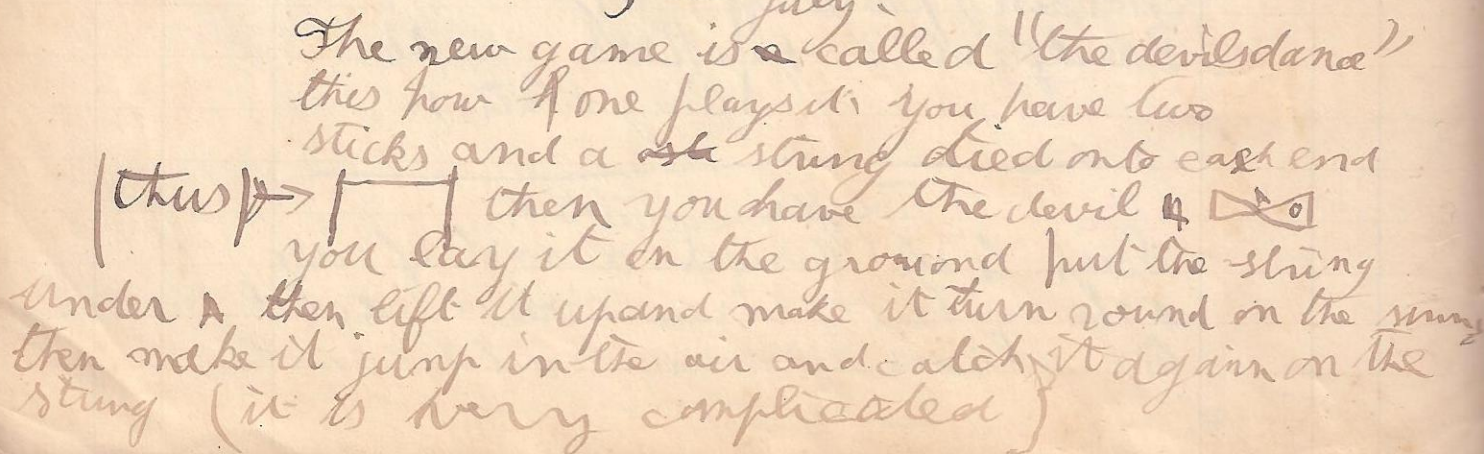 july.
The new game is called "the devilsdance"
this how one plays it. you have two
sticks and a string died onto each end
(thus) → then you have the devil
you lay it on the grouond put the string
under then lift it upand make it turn round on the
then make it jump in the air and catch it again on the
string (it is very complicated)